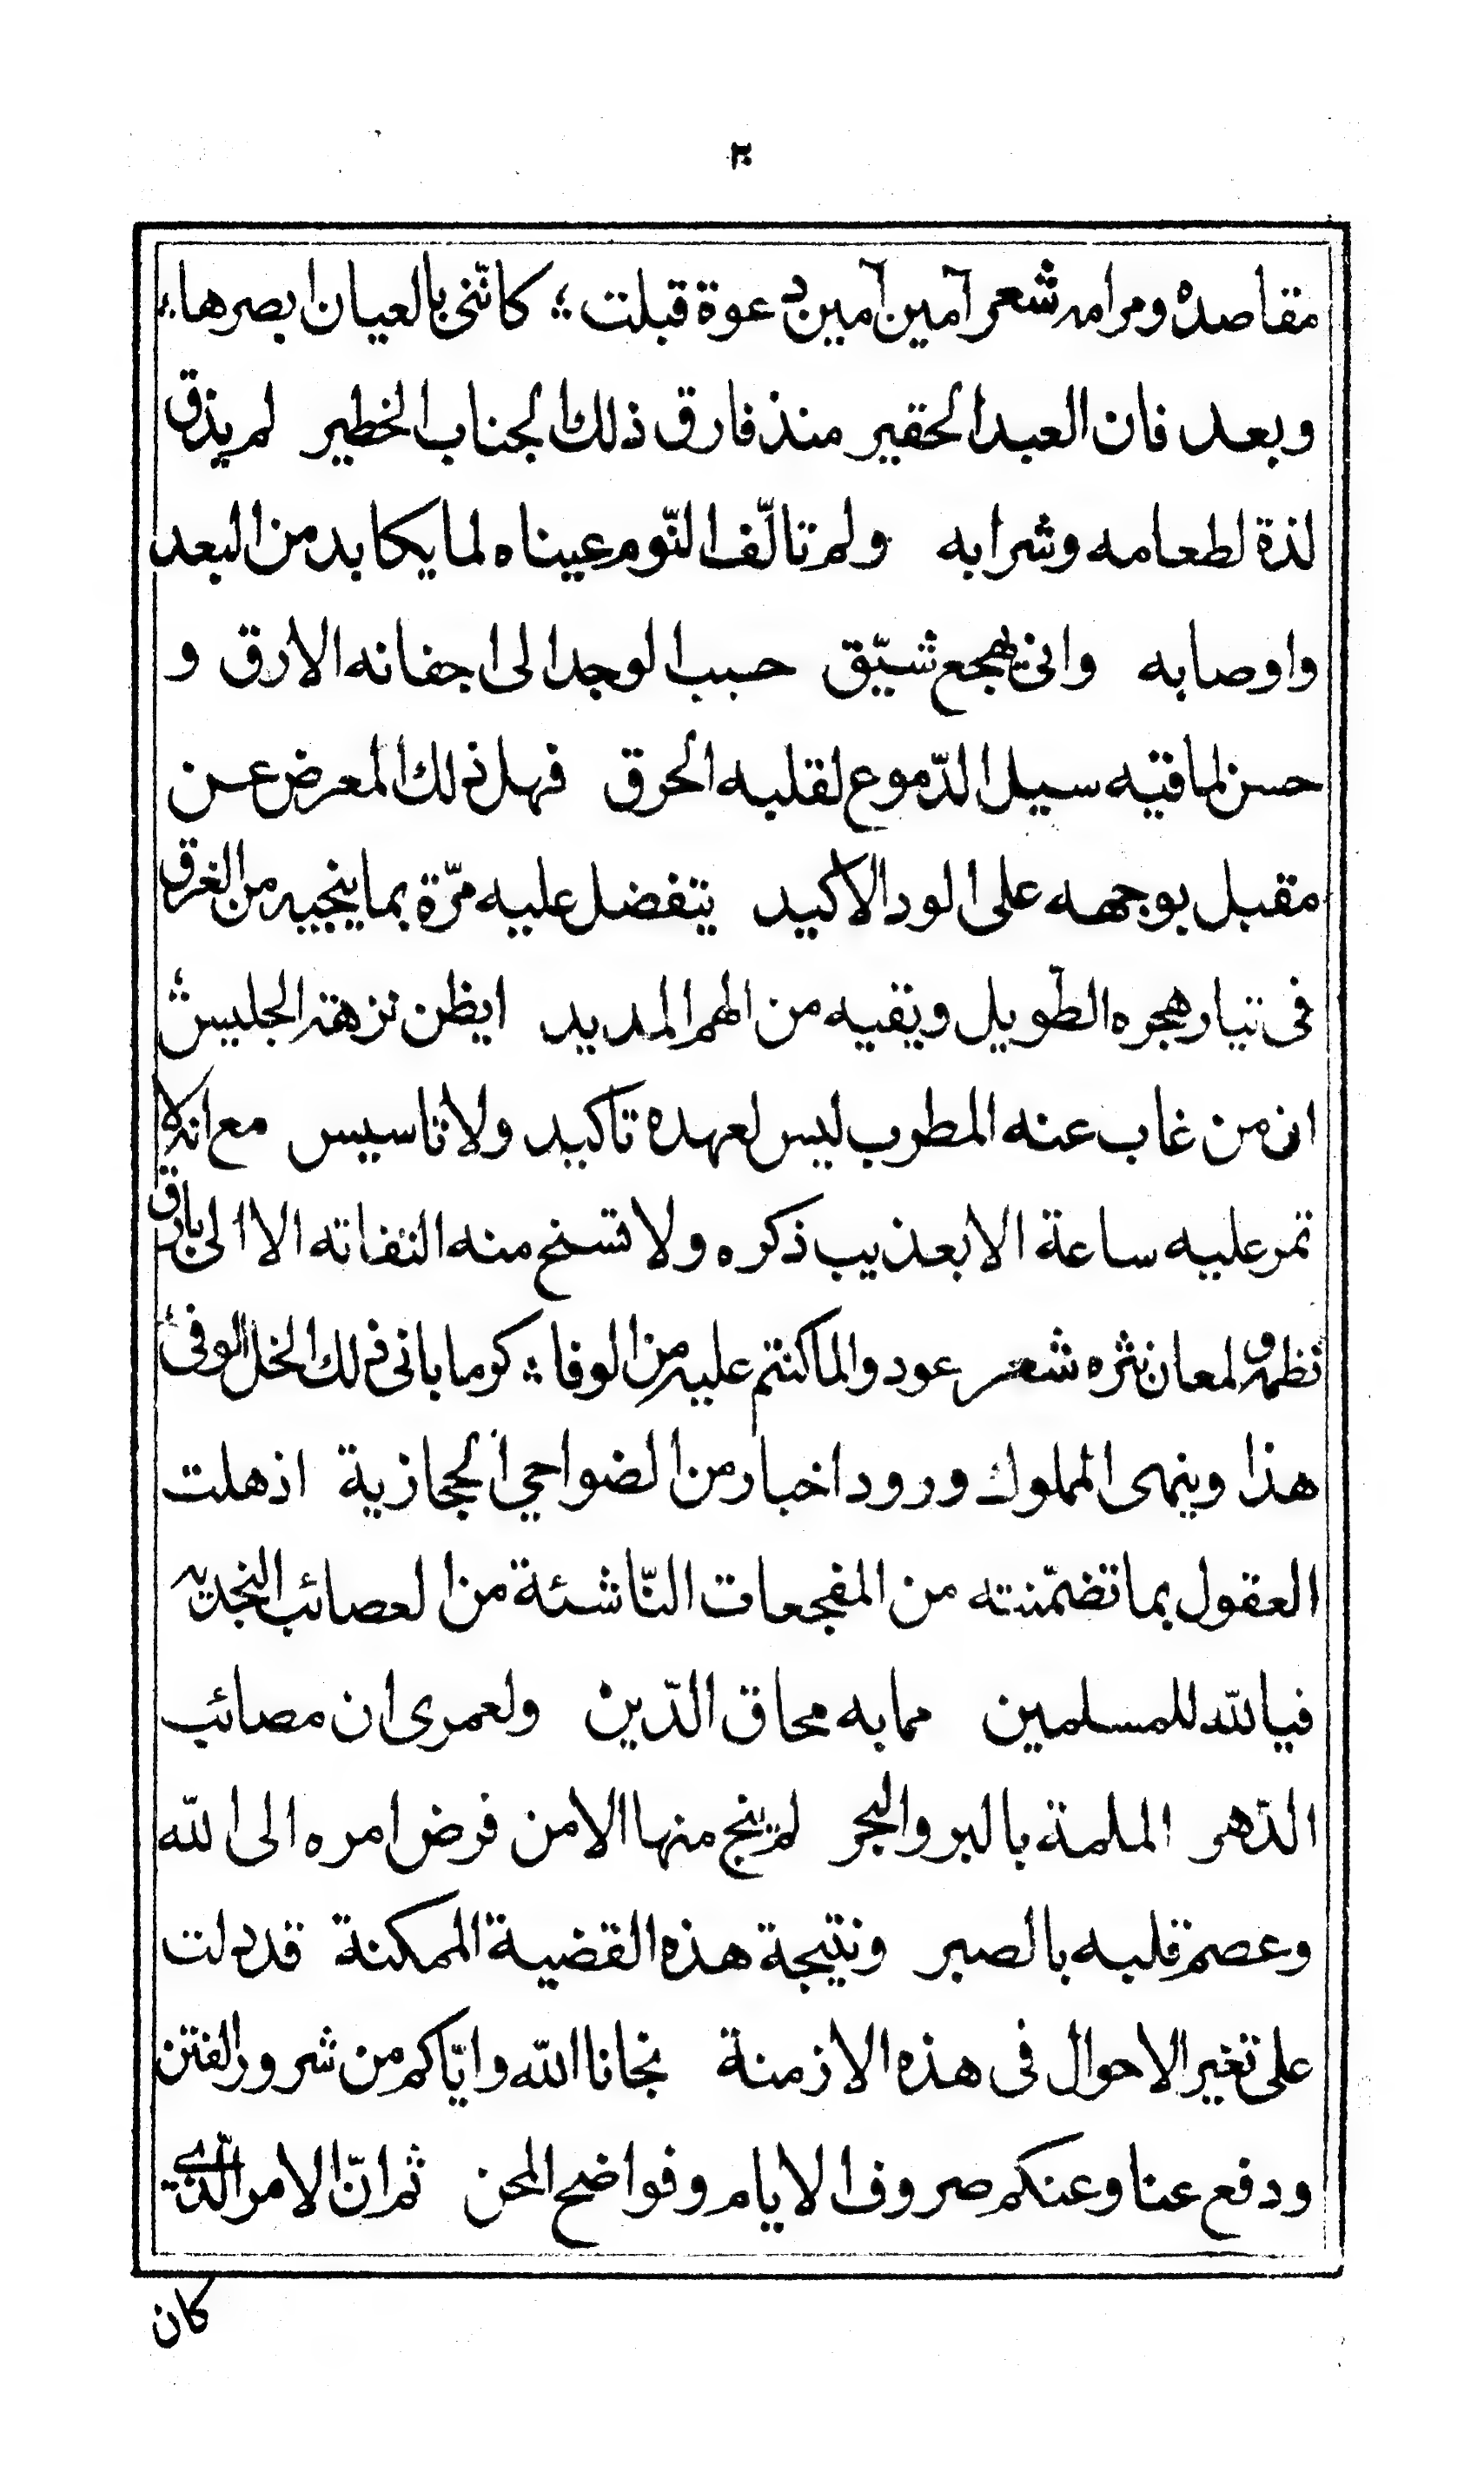 ٣
مقاصده ومرامه شعر آمين آمين دعوة قبلت ؛ كانّنى بالعيان ابصرها ؛
وبعد فان العبد الحقير منذ فارق ذلك الجناب الخطير لم يذق
لذة لطعامه وشرابه ولم تالّف النّوم عيناه لما يكابد من البعد
واوصابه وانى يهجع شيّق حبب الوجد الى اجفانه الارق و
حسن لماقيه سيل الدّموع لقلبه الحرق فهل ذلك المعرض عن
مقبل بوجهه على الود الاكيد يتفضل عليه مرّة بما ينجيه من الغرق
فى تيار هجره الطّويل ويقيه من الهم المديد ايظن نزهة الجليس
ان من غاب عنه المطرب ليس لعهده تاكيد ولا تاسيس مع انه لا
تمر عليه ساعة الا بعذيب ذكره ولا تسنح منه التفاته الا الى بارق
نظمه ولمعان نثره شعر عودوا لما كنتم عليه من الوفا ؛ كرما بانى ذلك الخل الوفى
هذا وينهى المملوك ورود اخبار من الضواحي الحجازية اذهلت
العقول بما تضمّنته من المفجعات النّاشئة من العصائب النجديه
فيالله للمسلمين مما به محاق الدّين ولعمرى ان مصائب
الدّهر الملمة بالبر والبحر لم ينج منها الا من فرض امره الى الله
وعصم قلبه بالصبر ونتيجة هذه القضية الممكنة قد دلت
على تغير الاحوال فى هذه الازمنة نجانا الله وايّاكم من شرور الفتن
ودفع عنا وعنكم صروف الايام وفواضح المحن ثم انّ الامر الّذى
كان